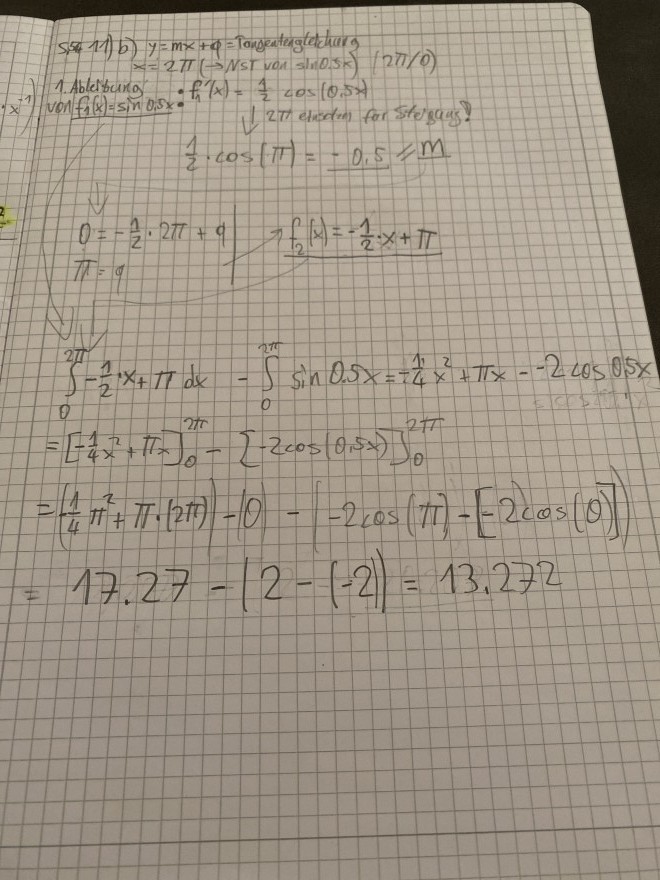 11) b) y = mx + q = Tangentengleichung
x = 2π (→ NST von sin 0.5x) (2π/0)
1. Ableitung
von f₁(x) = sin 0,5x • f₁'(x) = 1/2 cos(0,5x)
↓ 2π einsetzen für Steigung!
1/2 · cos(π) = - 0,5 // m
0 = -1/2 · 2π + q
π = q
f₂(x) = -1/2 · x + π
∫₀^2π -1/2 · x + π dx - ∫₀^2π sin 0.5x = -1/4 x² + πx - -2 cos 0,5x
= [-1/4 x² + πx]₀^2π - [-2cos(0,5x)]₀^2π
= (-1/4 π² + π · (2π)) - (0) - (-2cos(π) - [-2cos(0)])
= 17.27 - (2 - (-2)) = 13.272
· x⁻¹)